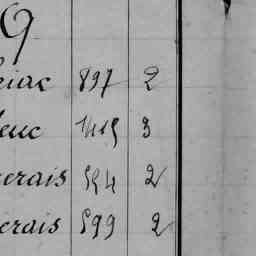 9
iac 897 2
euc 1415 3
erais 554 2
erais 599 2